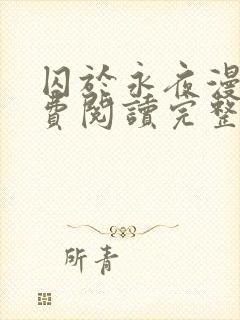 囚於永夜漫
費閱讀完整
所青